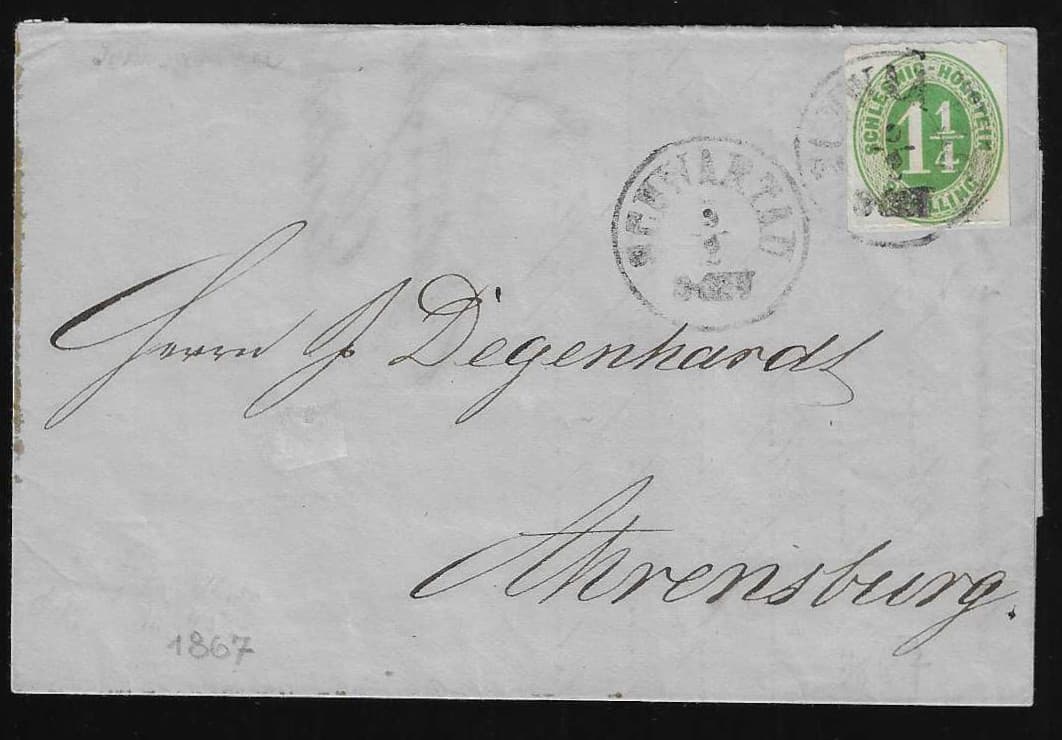 SCHLESWIG-HOLSTEIN
1 1/4
SCHILLING
SCHWARTAU
Herrn J Degenhardt
Ahrensburg.
1867